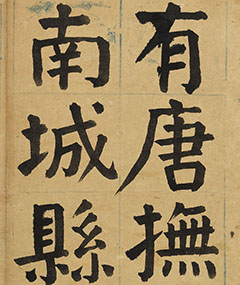 有唐撫
南城縣